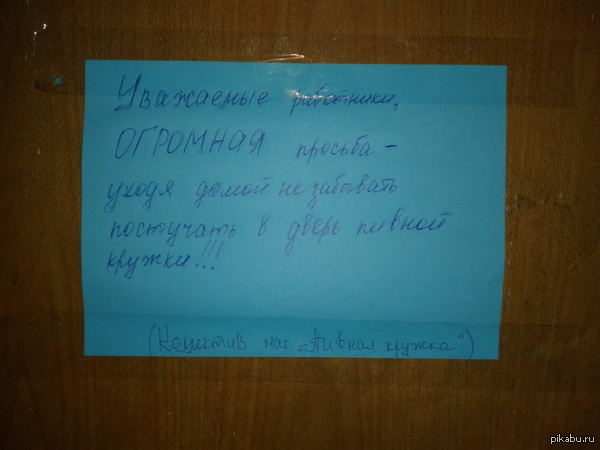 Уважаемые работники,
ОГРОМНАЯ просьба –
уходя домой не забывать
постучать в дверь пивной
кружки!!!
(Коллектив маг. „Пивная кружка")
pikabu.ru